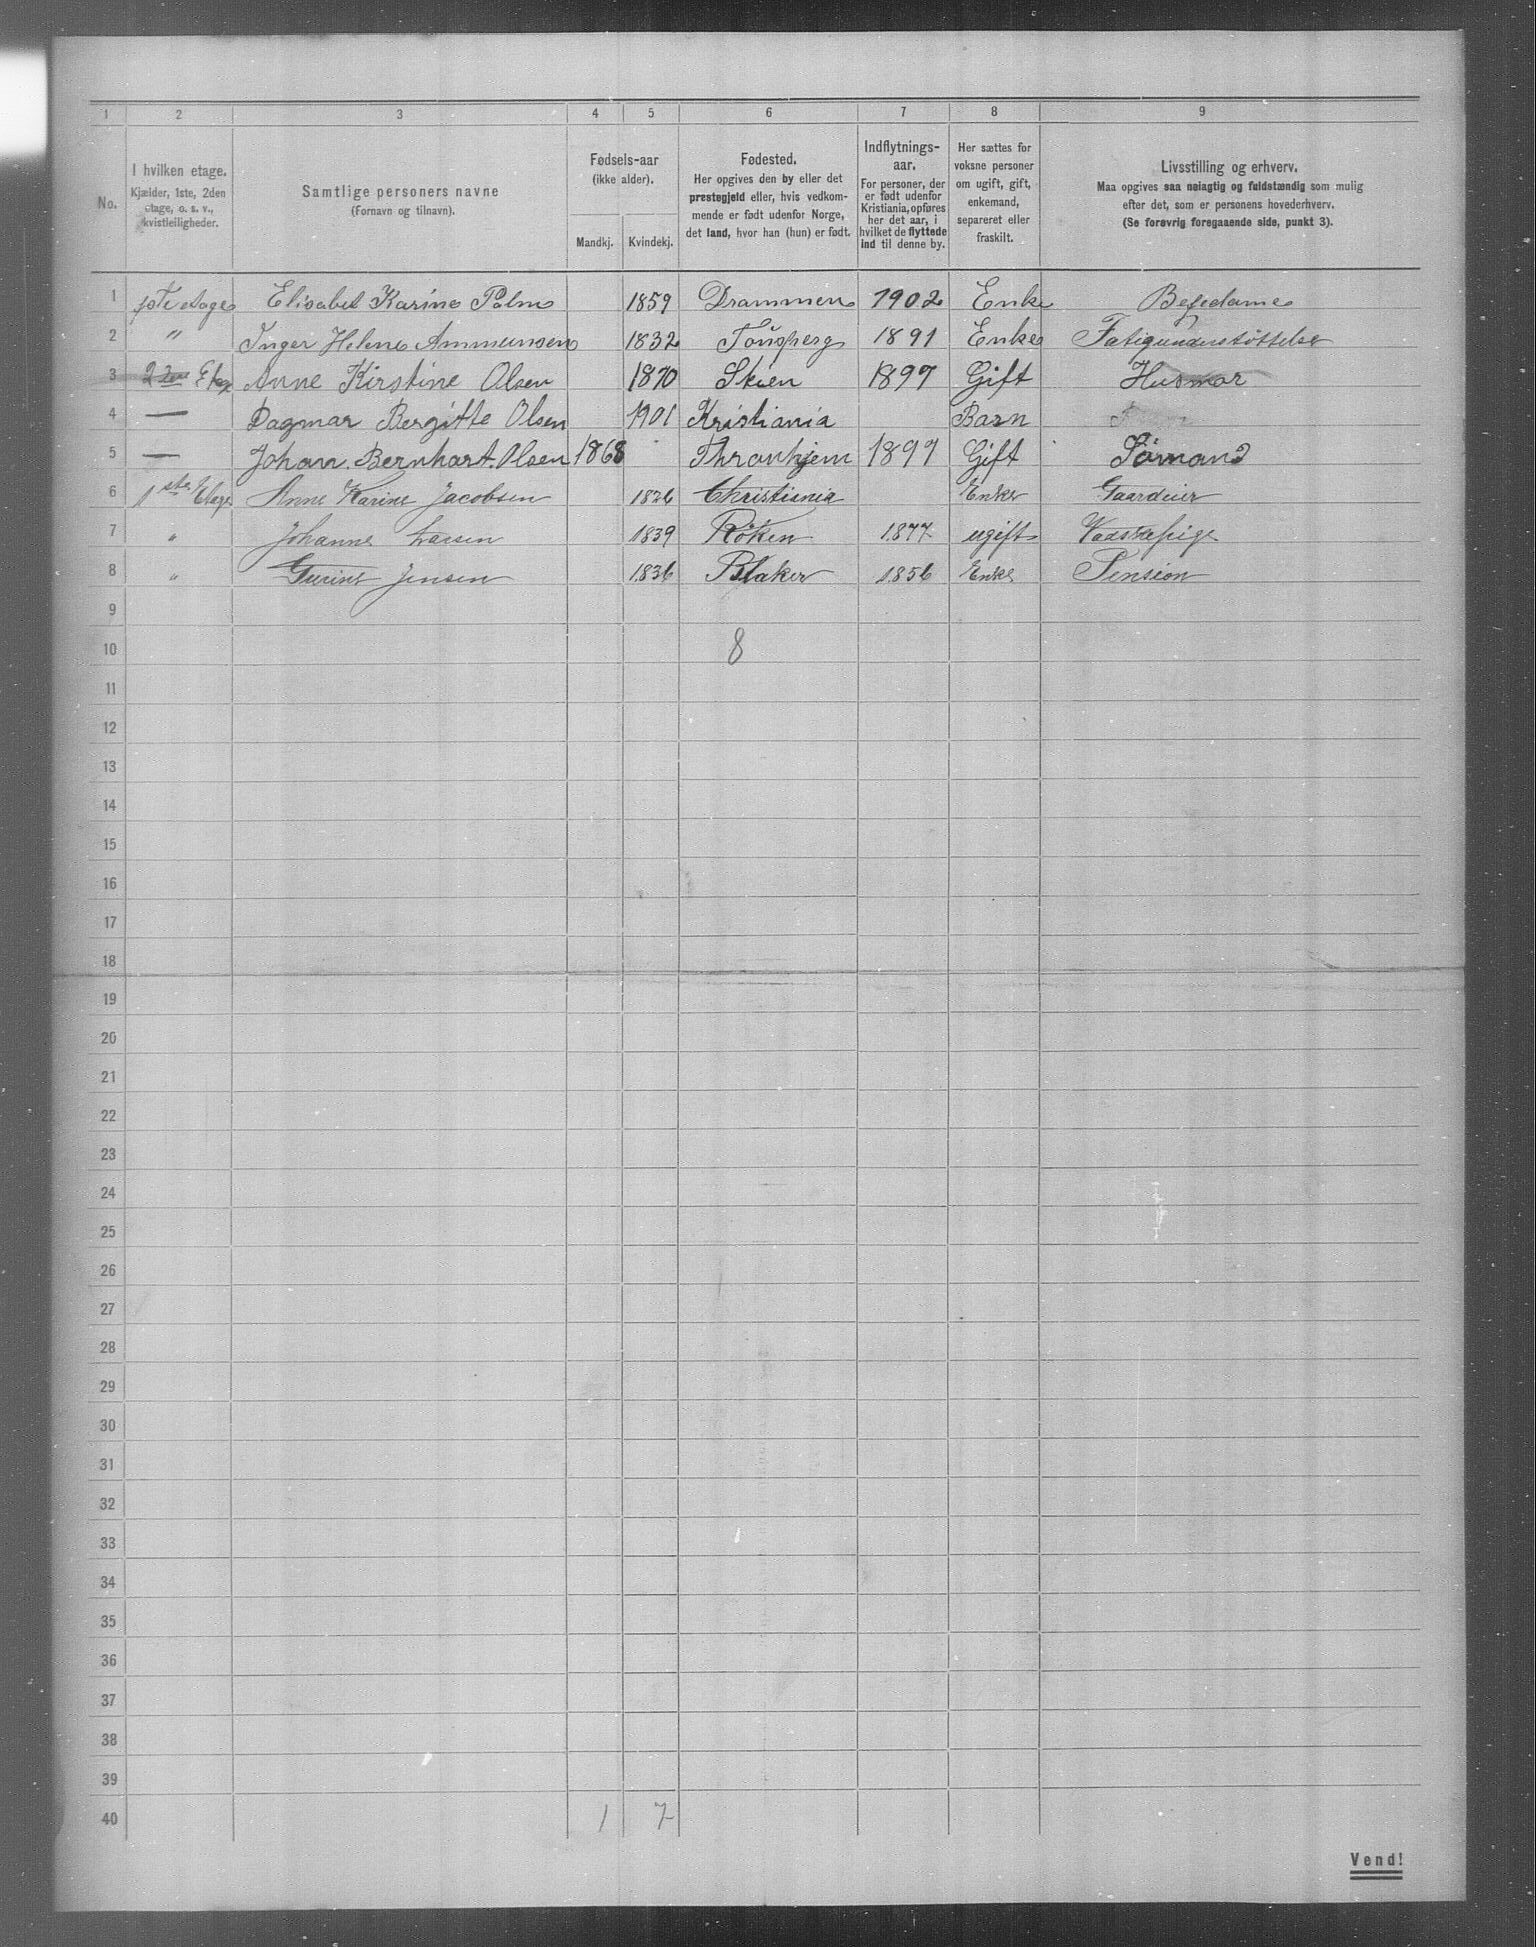 1 2 3 4 5 6 7 8 9
No.
I hvilken etage.
Kjælder, 1ste, 2den
etage, o. s. v.,
kvistleiligheder.
Samtlige personers navne
(Fornavn og tilnavn).
Fødsels-aar
(ikke alder).
Mandkj. Kvindekj.
Fødested.
Her opgives den by eller det
prestegjeld eller, hvis vedkom-
mende er født udenfor Norge,
det land, hvor han (hun) er født.
Indflytnings-
aar.
For personer, der
er født udenfor
Kristiania, opføres
her det aar, i
hvilket de flyttede
ind til denne by.
Her sættes for
voksne personer
om ugift, gift,
enkemand,
separeret eller
fraskilt.
Livsstilling og erhverv.
Maa opgives saa nøiagtig og fuldstændig som mulig
efter det, som er personens hovederhverv.
(Se forøvrig foregaaende side, punkt 3).
1 1ste etage Elisabet Karine Palm 1859 Drammen 1902 Enke
2 " Inger Helene Ammunsen 1832 Tönsperg 1891 Enke Fatigunderstøttelse
3 2den Etage Anne Kirstine Olsen 1870 Skien 1897 Gift Husmor
4 — Dagmar Bergitte Olsen 1901 Kristiania Barn
5 — Johan. Bernhart. Olsen 1868 Thronhjem 1897 Gift Sömand
6 1ste Etage Anne Karine Jacobsen 1826 Christiania Enke Gaardeier
7 " Johanne Larsen 1839 Röken 1877 ugift Vadskepige
8 " Gurine Jensen 1836 Blaker 1856 Enke Pension
9
10 8
11
12
13
14
15
16
17
18
19
20
21
22
23
24
25
26
27
28
29
30
31
32
33
34
35
36
37
38
39
40 1 7
Vend!